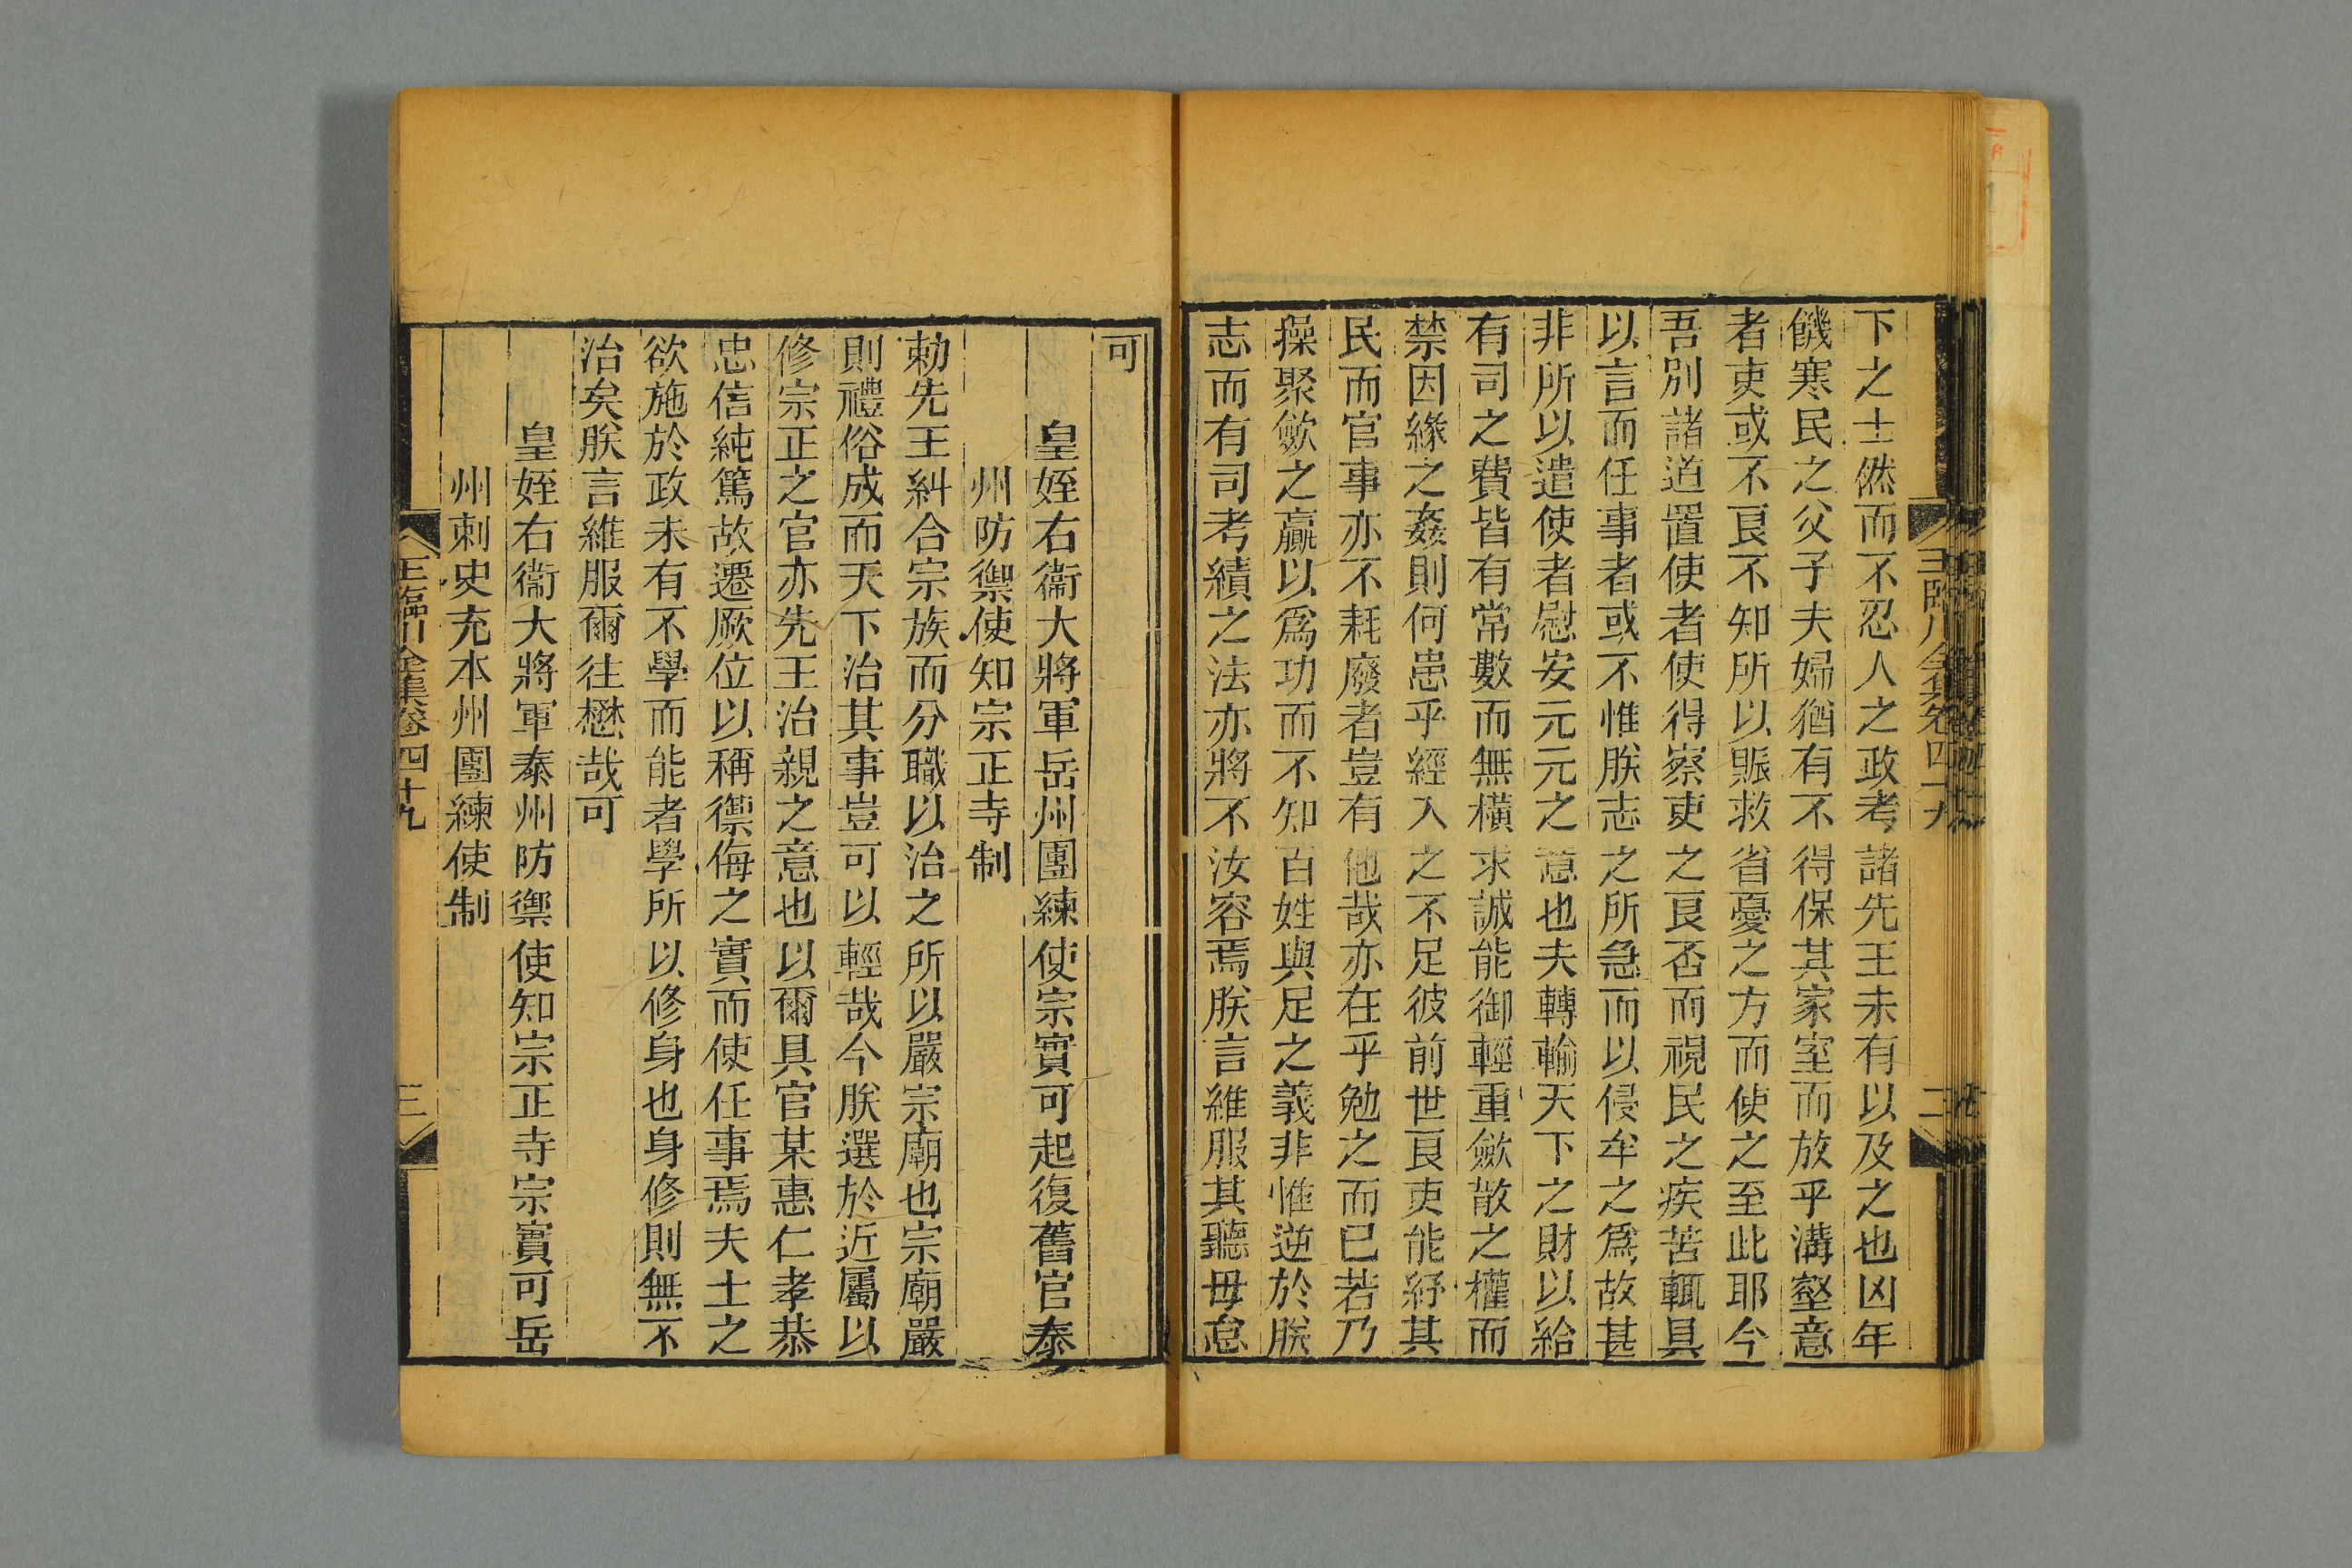 王臨川全集卷四十九
二
下之士然而不忍人之政考諸先王未有以及之也凶年
饑寒民之父子夫婦猶有不得保其家室而放乎溝壑意
者吏或不良不知所以賑救省憂之方而使之至此耶今
吾別諸道置使者使得察吏之良否而視民之疾苦輒具
以言而任事者或不惟朕志之所急而以侵牟之爲故甚
非所以遣使者慰安元元之意也夫轉輸天下之財以給
有司之費皆有常數而無橫求誠能御輕重斂散之權而
禁因緣之姦則何患乎經入之不足彼前世良吏能紓其
民而官事亦不耗廢者豈有他哉亦在乎勉之而已若乃
操聚斂之贏以爲功而不知百姓與足之義非惟逆於朕
志而有司考績之法亦將不汝容焉朕言維服其聽毋怠
可
皇姪右衞大將軍岳州團練使宗實可起復舊官泰
州防禦使知宗正寺制
勅先王糾合宗族而分職以治之所以嚴宗廟也宗廟嚴
則禮俗成而天下治其事豈可以輕哉今朕選於近屬以
修宗正之官亦先王治親之意也以爾具官某惠仁孝恭
忠信純篤故遷厥位以稱禦侮之實而使任事焉夫士之
欲施於政未有不學而能者學所以修身也身修則無不
治矣朕言維服爾往懋哉可
皇姪右衞大將軍泰州防禦使知宗正寺宗實可岳
州刺史充本州團練使制
王臨川全集卷四十九
三